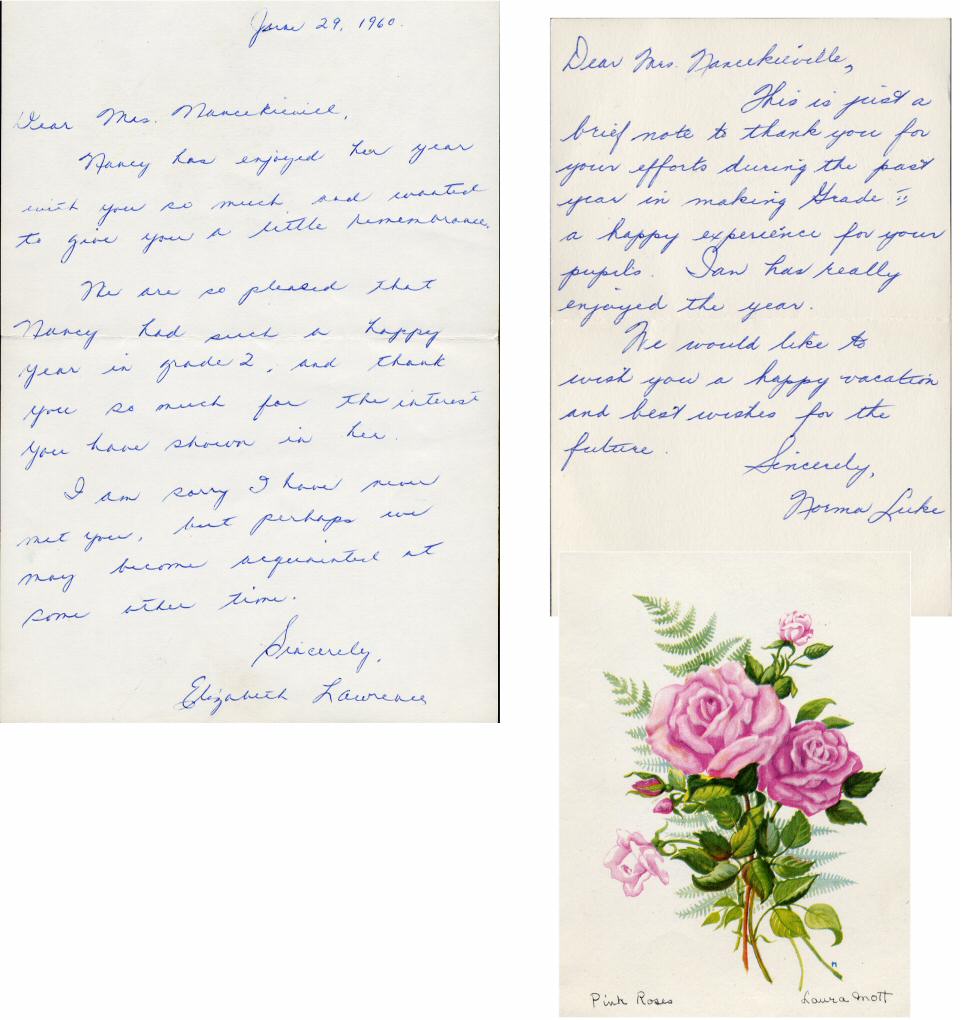 June 29, 1960.
Dear Mrs. Nancekievill,
Nancy has enjoyed her year
with you so much and wanted
to give you a little remembrance.
We are so pleased that
Nancy had such a happy
year in grade 2, and thank
you so much for the interest
you have shown in her.
I am sorry I have never
met you, but perhaps we
may become acquainted at
some other time.
Sincerely,
Elizabeth Lawrence
Dear Mrs. Nancekieville,
This is just a
brief note to thank you for
your efforts during the past
year in making Grade II
a happy experience for your
pupils. Ian has really
enjoyed the year.
We would like to
wish you a happy vacation
and best wishes for the
future.
Sincerely,
Norma Luke
M
Pink Roses Laura Mott